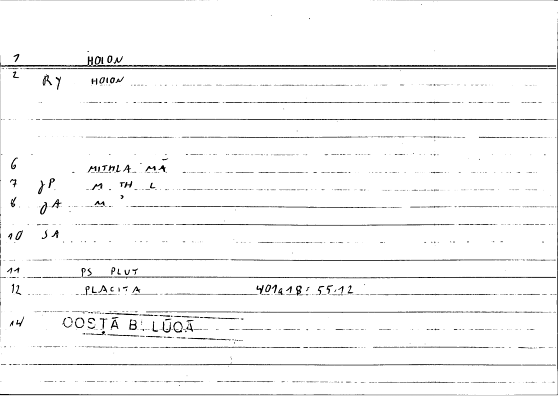 1 HOION
2 RY HOION
6 MITHLA MĀ
7 JP M. TH L
8 JA M. ʾ
10 SA
11 PS PLUT
12 PLACITA 401a18; 55.12
14 OOSṬĀ B. LŪQĀ